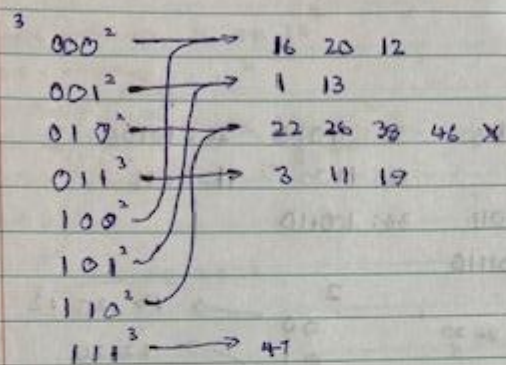 3
000² → 16 20 12
001² → 1 13
010² → 22 26 38 46 X
011³ → 3 11 19
100²
101²
110²
111³ → 47